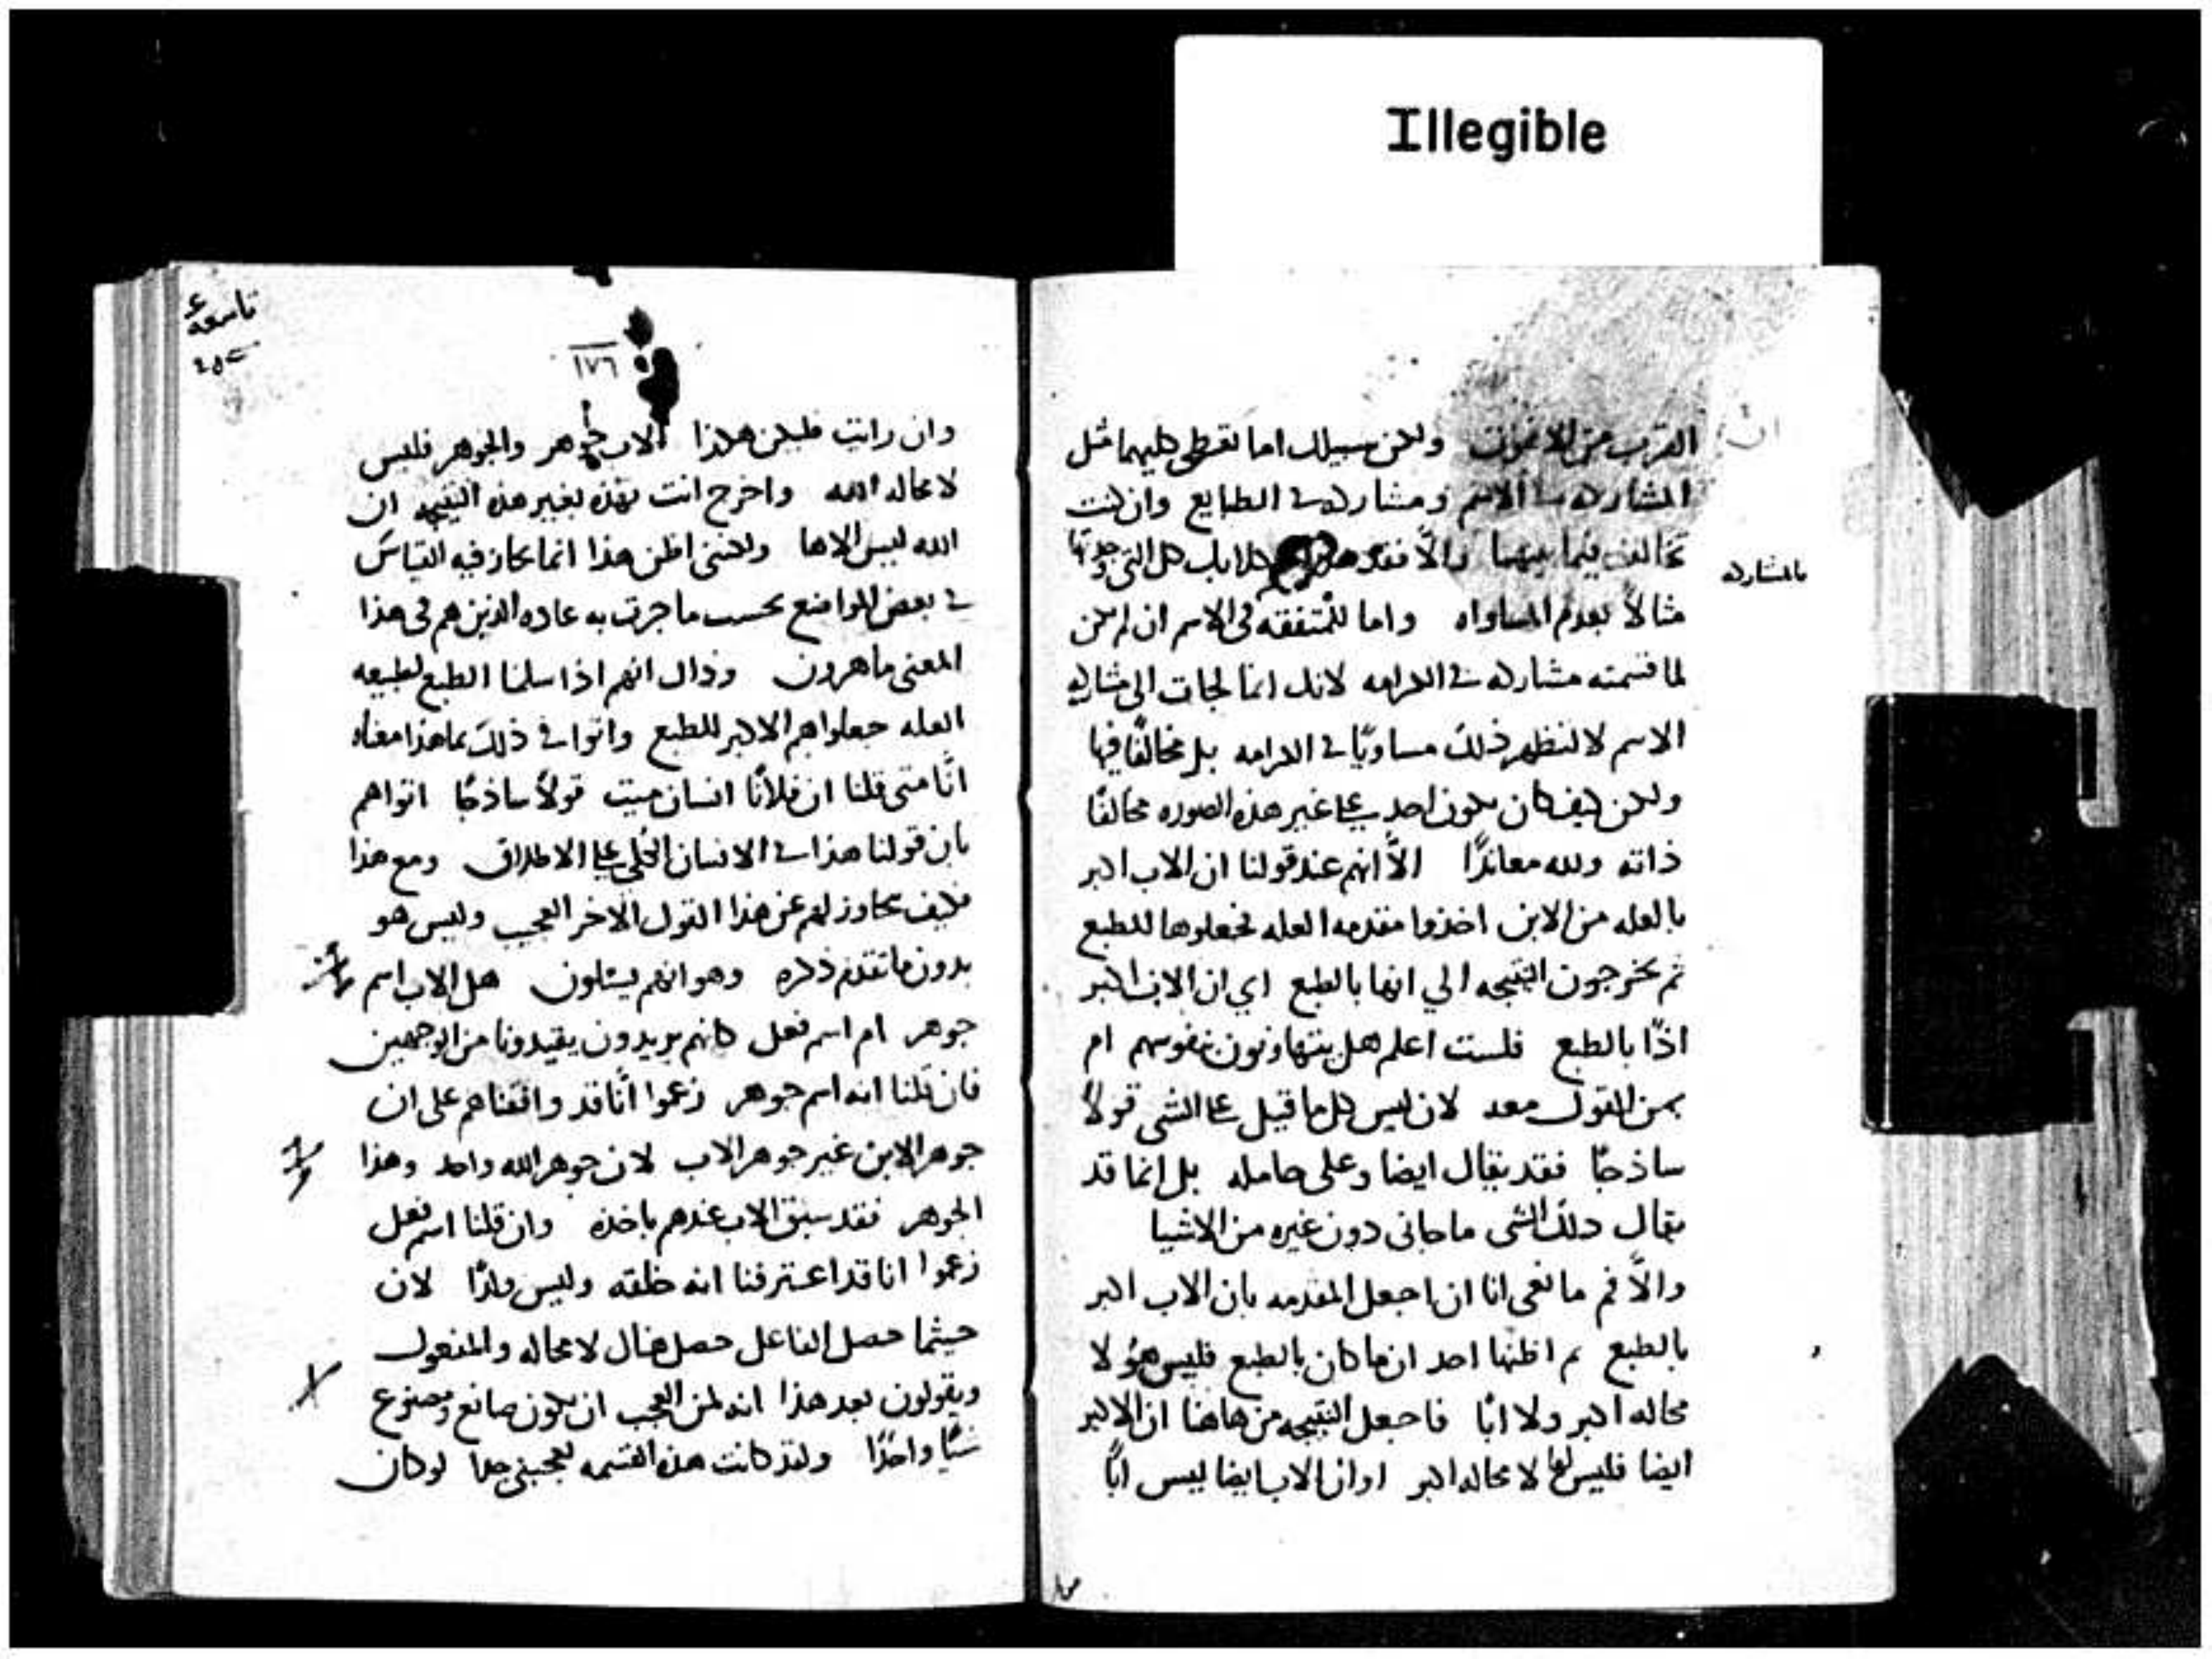 Illegible
ولكن سبيلك اما تعطى كليهما مثل
المشاركه في الاسم ومشاركه في الطبايع وان كنت
تخالف فيما بينهما والا فقد كل التي وجدتها
بالمشاركه
مثالا بعدم المساواه واما للمتفقه في الاسم ان لم تكن
لما قسمته مشاركه في الكرامه لانك انما لجات الى مشاركه
الاسم لا لتظهر ذلك مساويًا في الكرامه بل مخالفًا فيها
ولكن كيف كان يكون احد على غير هذه الصوره مخالفًا
ذاته ولله معاندًا الاّ انهم عند قولنا ان الاب اكبر
بالعله من الابن اخذوا مقدمه العله فجعلوها للطبع
ثم يخرجون النتيجه الي انها بالطبع اي ان الاب اكبر
اذًا بالطبع فلست اعلم هل يتهاونون بنفوسهم ام
بمن القول معه لان ليس كل ما قيل على الشى قولاً
ساذجًا فقد يقال ايضا وعلى حامله بل انما قد
يقال ذلك الشى دون غيره من الاشيا
والاّ فم مانعي انا ان اجعل المقدمه بان الاب اكبر
بالطبع ثم اظنها احد ان ما كان بالطبع فليس هو لا
محاله اكبر ولا ابًا فاجعل النتيجه من هاهنا ان الاكبر
ايضا فليس لا محاله اكبر او ان الاب ايضا ليس ابًا
تاسعه
١٧٦
وان رايت فليكن هكذا الاب جوهر والجوهر فليس
لا محاله الله واخرج انت هذه النتيجه ان
الله ليس الاها ولكنني اظن هذا انما يحاز فيه القياس
في بعض المواضع بحسب ما جرت به عاده الذين هم في هذا
المعنى ماهرون وذاك انهم اذا سلمنا الطبع لطبيعه
العله جعلوا هم الاكبر للطبع واتوا في ذلك بما هذا معناه
انّا متى قلنا ان فلانًا انسان ميت قولاً ساذجًا اتوا هم
بان قولنا هذا في الانسان الكلي على الاطلاق ومع هذا
فكيف نجاوز لهم عن هذا القول الاخر العجيب وليس هو
بدون ما تقدم ذكره وهو انهم يسئلون هل الاب اسم
جوهر ام اسم فعل كانهم يريدون يقيدونا من الوجهين
فان قلنا انه اسم جوهر زعموا انّا قد وافقناهم على ان
جوهر الابن غير جوهر الاب لان جوهر الله واحد وهذا
الجوهر فقد سبق الاب عندهم باخذه وان قلنا اسم فعل
زعموا انا قد اعترفنا انه خلقه وليس ولدًا لان
حيثما حصل الفاعل حصل هناك لا محاله والمفعول
ويقولون بعد هذا انه لمن العجب ان يكون صانع ومصنوع
شيًا واحدًا ولقد كانت هذه القسمه تعجبني جدا لو كان